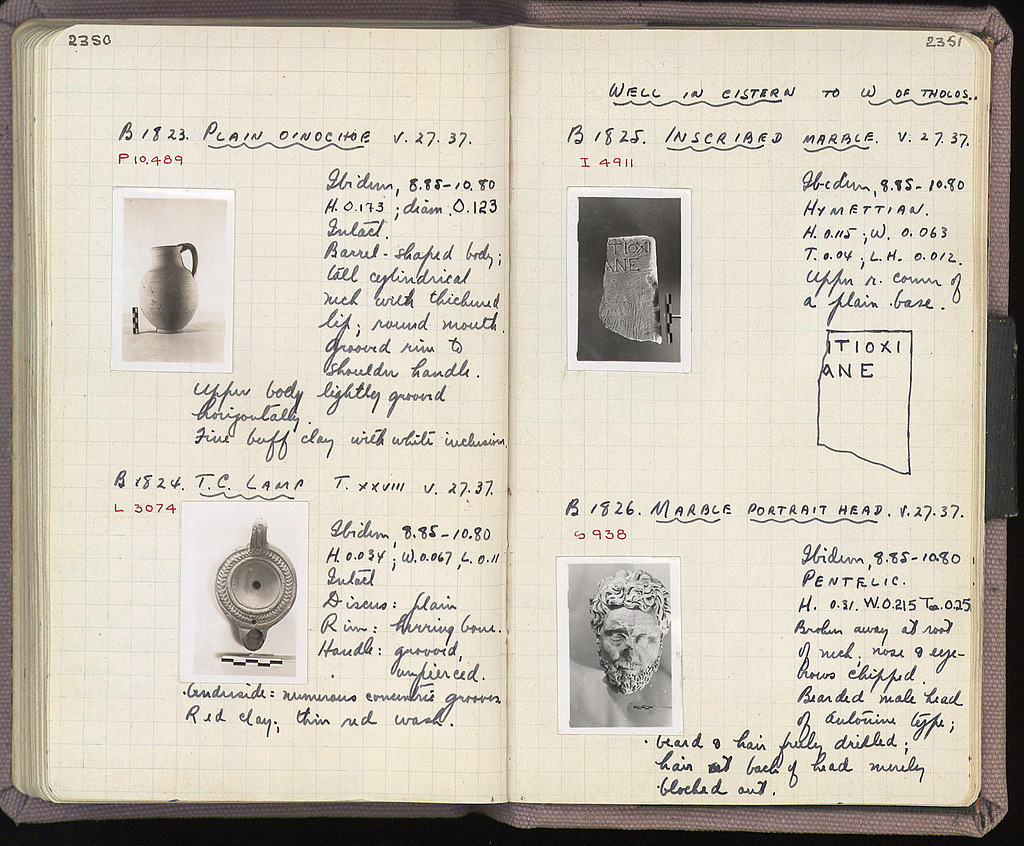 2350
B 1823. PLAIN OINOCHOE V. 27. 37.
P 10,489
Ibidem, 8.85-10.80
H. 0.173; diam. 0.123
Intact.
Barrel-shaped body;
tall cylindrical
neck with thickened
lip; round mouth.
Grooved rim to
shoulder handle.
Upper body lightly grooved
horizontally.
Fine buff clay with white inclusions.
B 1824. T.C. LAMP T. XXVIII V. 27.37.
L 3074
Ibidem, 8.85-10.80
H. 0.034; W. 0.067, L. 0.11
Intact
Discus: plain
Rim: herring bone.
Handle: grooved,
unpierced.
Underside: numerous concentric grooves
Red clay; thin red wash.
2351
WELL IN CISTERN TO W OF THOLOS.
B 1825. INSCRIBED MARBLE. V. 27.37.
I 4911
Ibidem, 8.85-10.80
HYMETTIAN.
H. 0.115; W. 0.063
T. 0.04; L.H. 0.012.
Upper r. corner of
a plain base.
ΙΤΙΟΧΙ
ΑΝΕ
ΤΙΟΧΙ
ΑΝΕ
B 1826. MARBLE PORTRAIT HEAD. V. 27.37.
S 938
Ibidem, 8.85-10.80
PENTELIC.
H. 0.31. W. 0.215 T. 0.25
Broken away at root
of neck; nose & eye-
brows chipped.
Bearded male head
of Antonine type;
beard & hair freely drilled;
hair at back of head merely
blocked out.